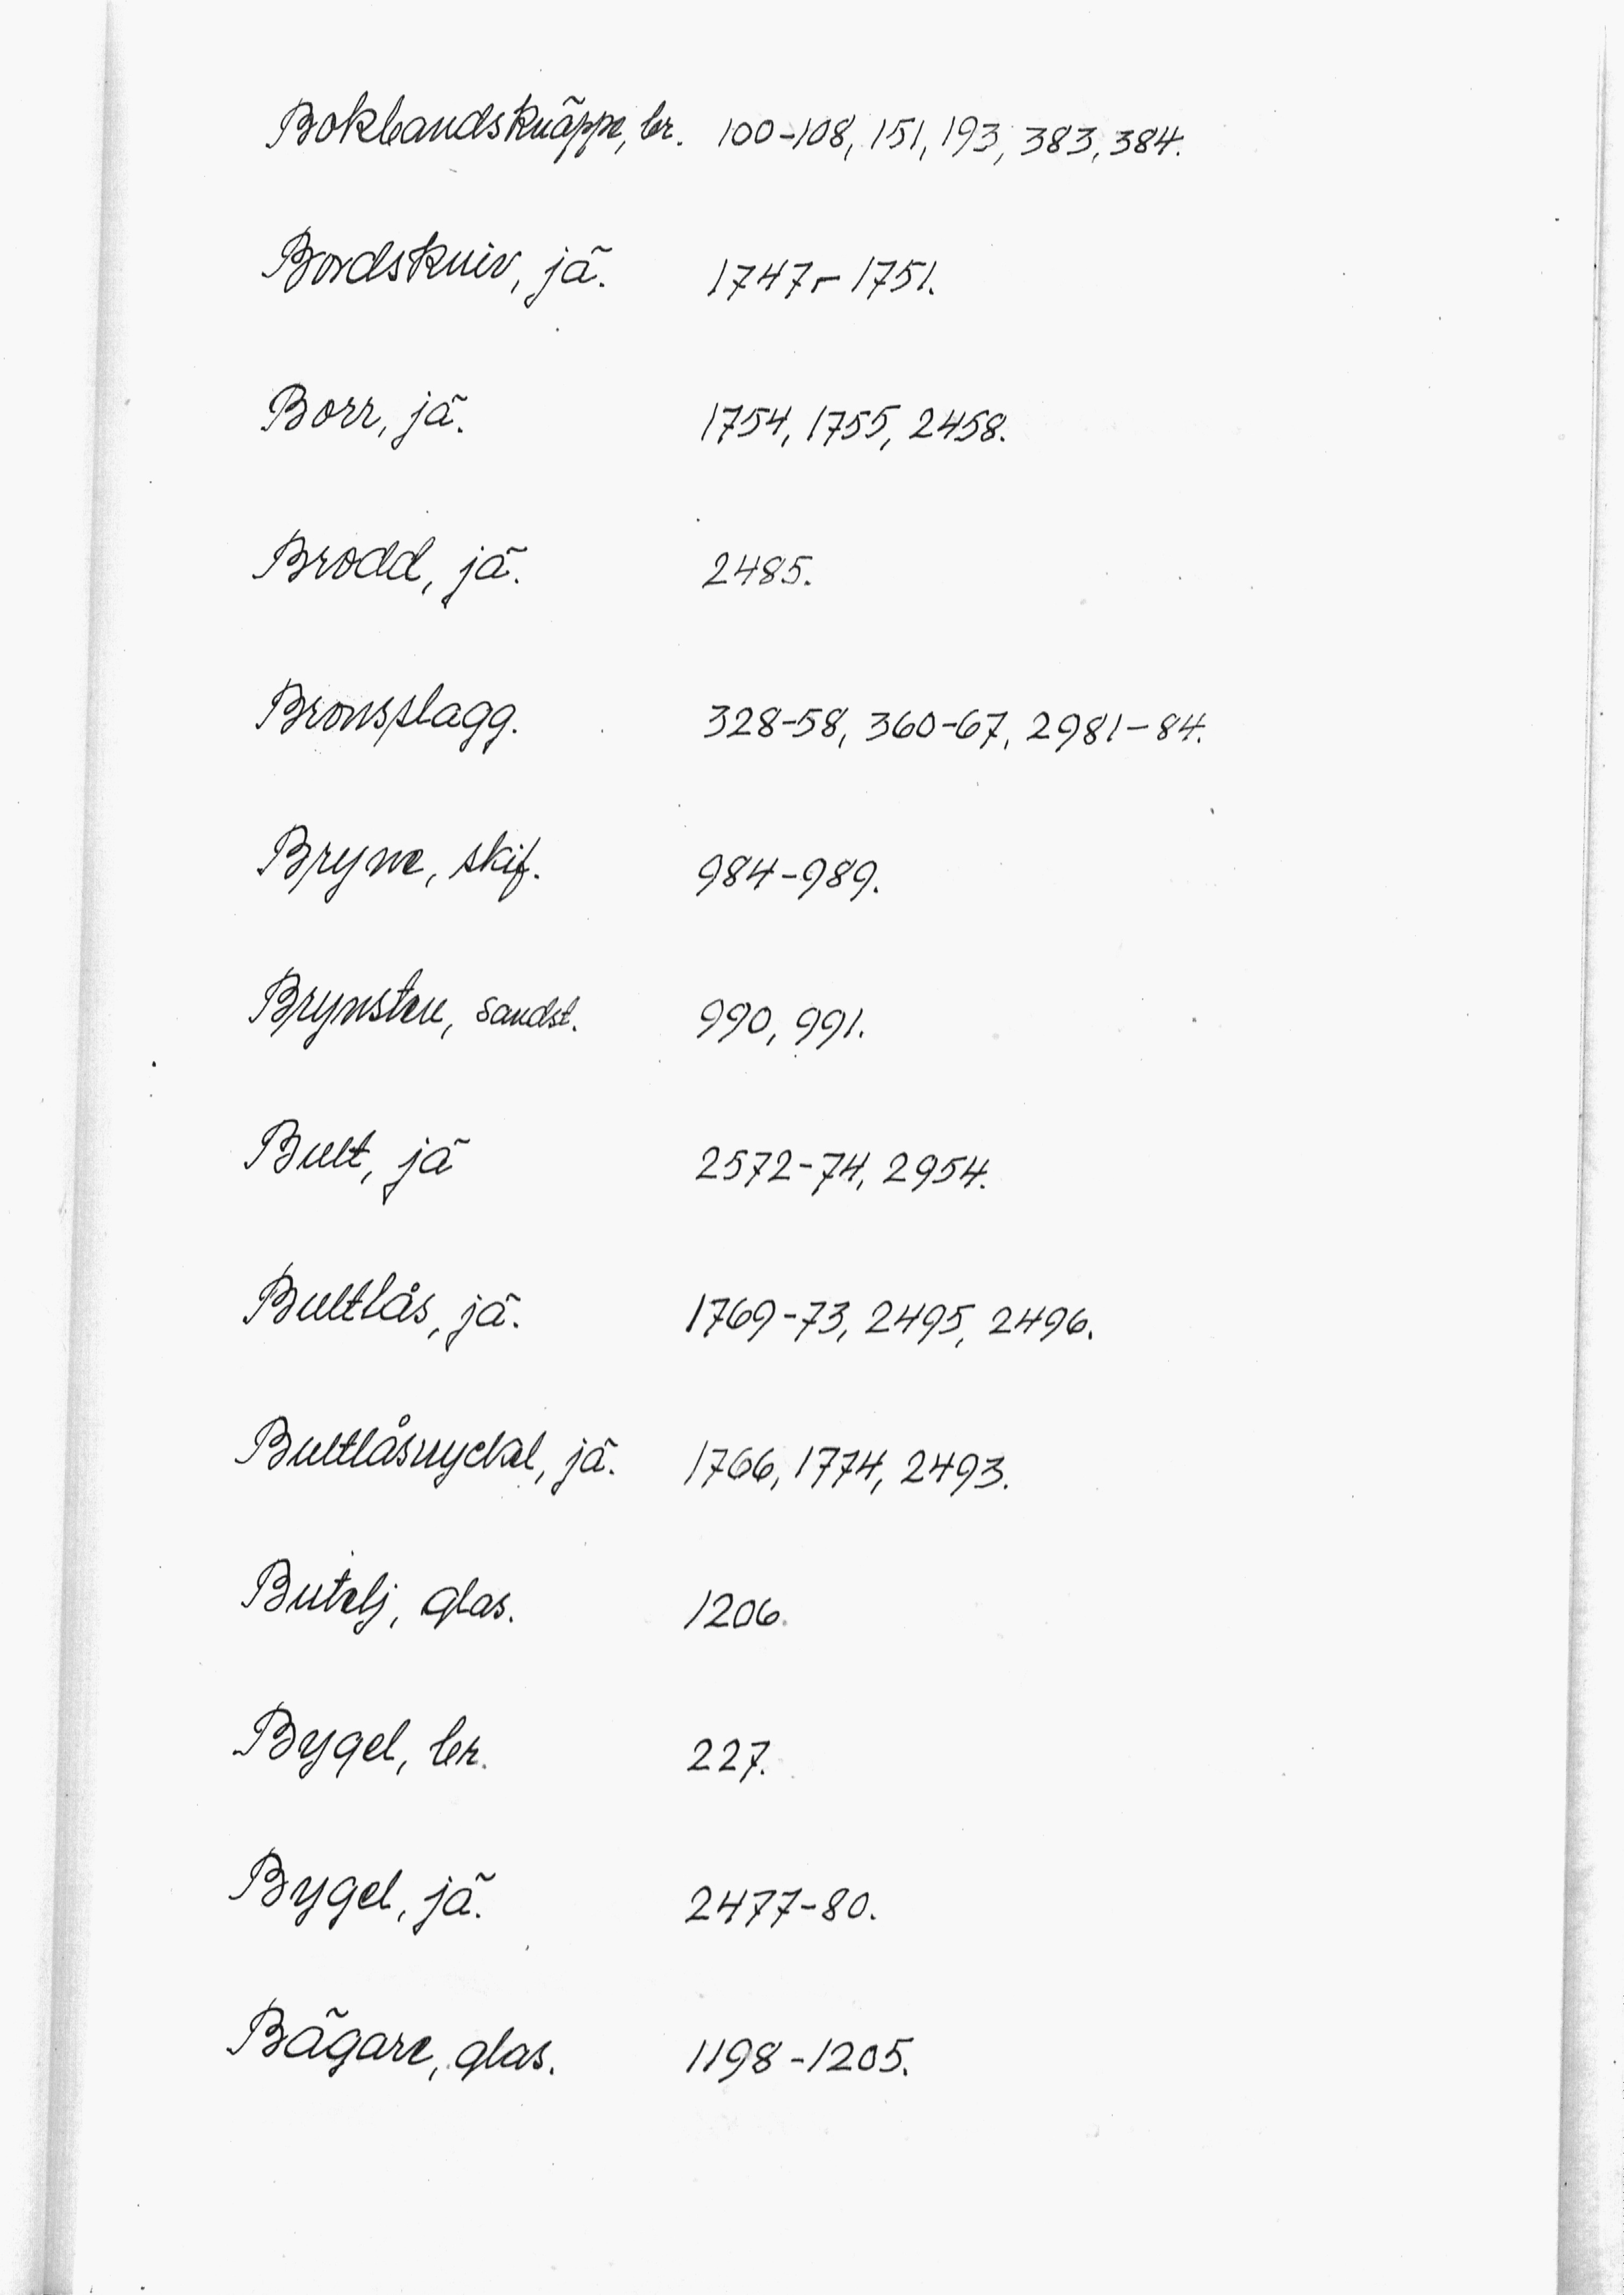 Bokbandsknäppe, br. 100-108, 151, 193, 383, 384.
Bordskniv, jä. 1747-1751.
Borr, jä. 1754, 1755, 2458.
Brodd, jä. 2485.
Bronsplagg. 328-58, 360-67, 2981-84.
Bryne, skif. 984-989.
Brynsten, sandst. 990, 991.
Bult, jä 2572-74, 2954.
Bultlås, jä. 1769-73, 2495, 2496.
Bultlåsnyckel, jä. 1766, 1774, 2493.
Butelj, glas. 1206.
Bygel, br. 227.
Bygel, jä. 2477-80.
Bägare, glas. 1198-1205.